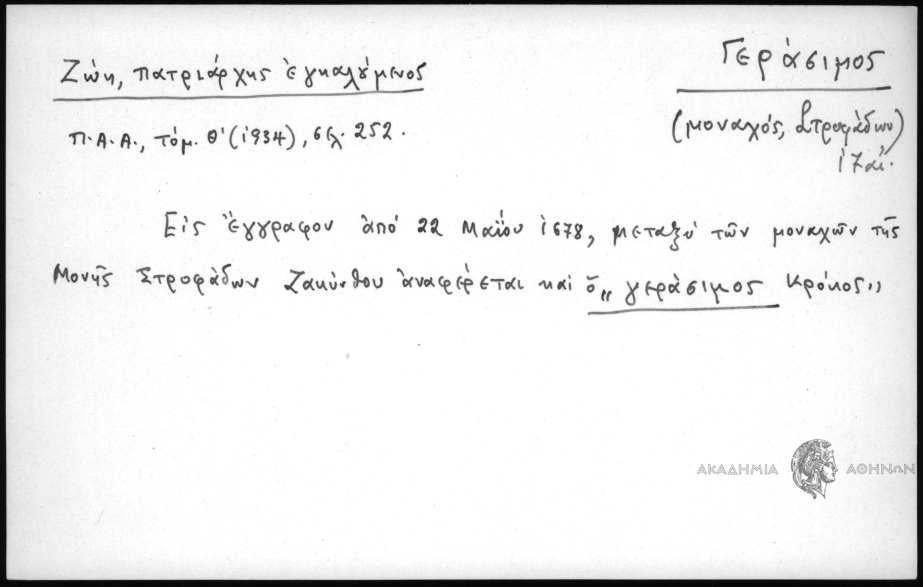 Ζώη, πατριάρχης ἐγκαλούμενος
Γεράσιμος
Π.Α.Α., τόμ. Θ' (1934), σελ. 252.
(μοναχός, Στροφάδων)
17 αἰ.
Εἰς ἔγγραφον ἀπό 22 Μαΐου 1678, μεταξύ τῶν μοναχῶν τῆς
Μονῆς Στροφάδων Ζακύνθου ἀναφέρεται καί ὁ „ γεράσιμος Κρόκος "
ΑΚΑΔΗΜΙΑ ΑΘΗΝΩΝ